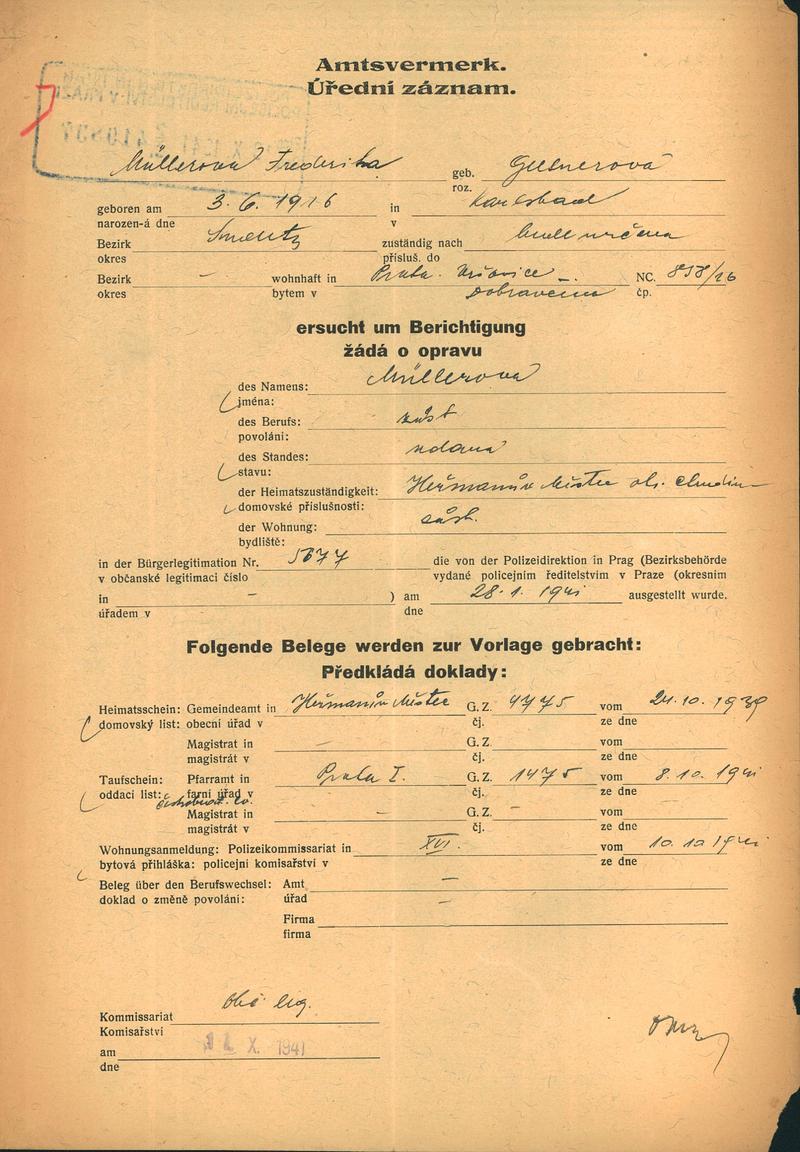 Amtsvermerk.
Úřední záznam.
Müllerova Frederika geb. Gellnerová
roz.
geboren am 3. 6. 1916 in Karlsbad
narozen-á dne v
Bezirk zuständig nach
okres přísluš. do
Bezirk – wohnhaft in Praha - Vršovice NC. 858/26
okres bytem v čp.
ersucht um Berichtigung
žádá o opravu
des Namens: Müllerova
jména:
des Berufs:
povolání:
des Standes: vdana
stavu:
der Heimatszuständigkeit: Heřmanův Městec ok. Chrudim
domovské příslušnosti:
der Wohnung:
bydliště:
in der Bürgerlegitimation Nr. 5677 die von der Polizeidirektion in Prag (Bezirksbehörde
v občanské legitimaci číslo vydané policejním ředitelstvím v Praze (okresním
in – ) am 28. 1. 1941 ausgestellt wurde.
úřadem v dne
Folgende Belege werden zur Vorlage gebracht:
Předkládá doklady:
Heimatsschein: Gemeindeamt in Heřmanův Městec G. Z. 4775 vom 24. 10. 1939
domovský list: obecní úřad v čj. ze dne
Magistrat in – G. Z. vom
magistrát v čj. ze dne
Taufschein: Pfarramt in Praha I. G. Z. 1475 vom 8. 10. 1941
oddací list: farní úřad v čj. ze dne
Magistrat in – G. Z. – vom
magistrát v čj. ze dne
Wohnungsanmeldung: Polizeikommissariat in XVI. vom 10. 10 1941
bytová přihláška: policejní komisařství v ze dne
Beleg über den Berufswechsel: Amt –
doklad o změně povolání: úřad –
Firma
firma
Kommissariat
Komisařství
am X. 1941
dne